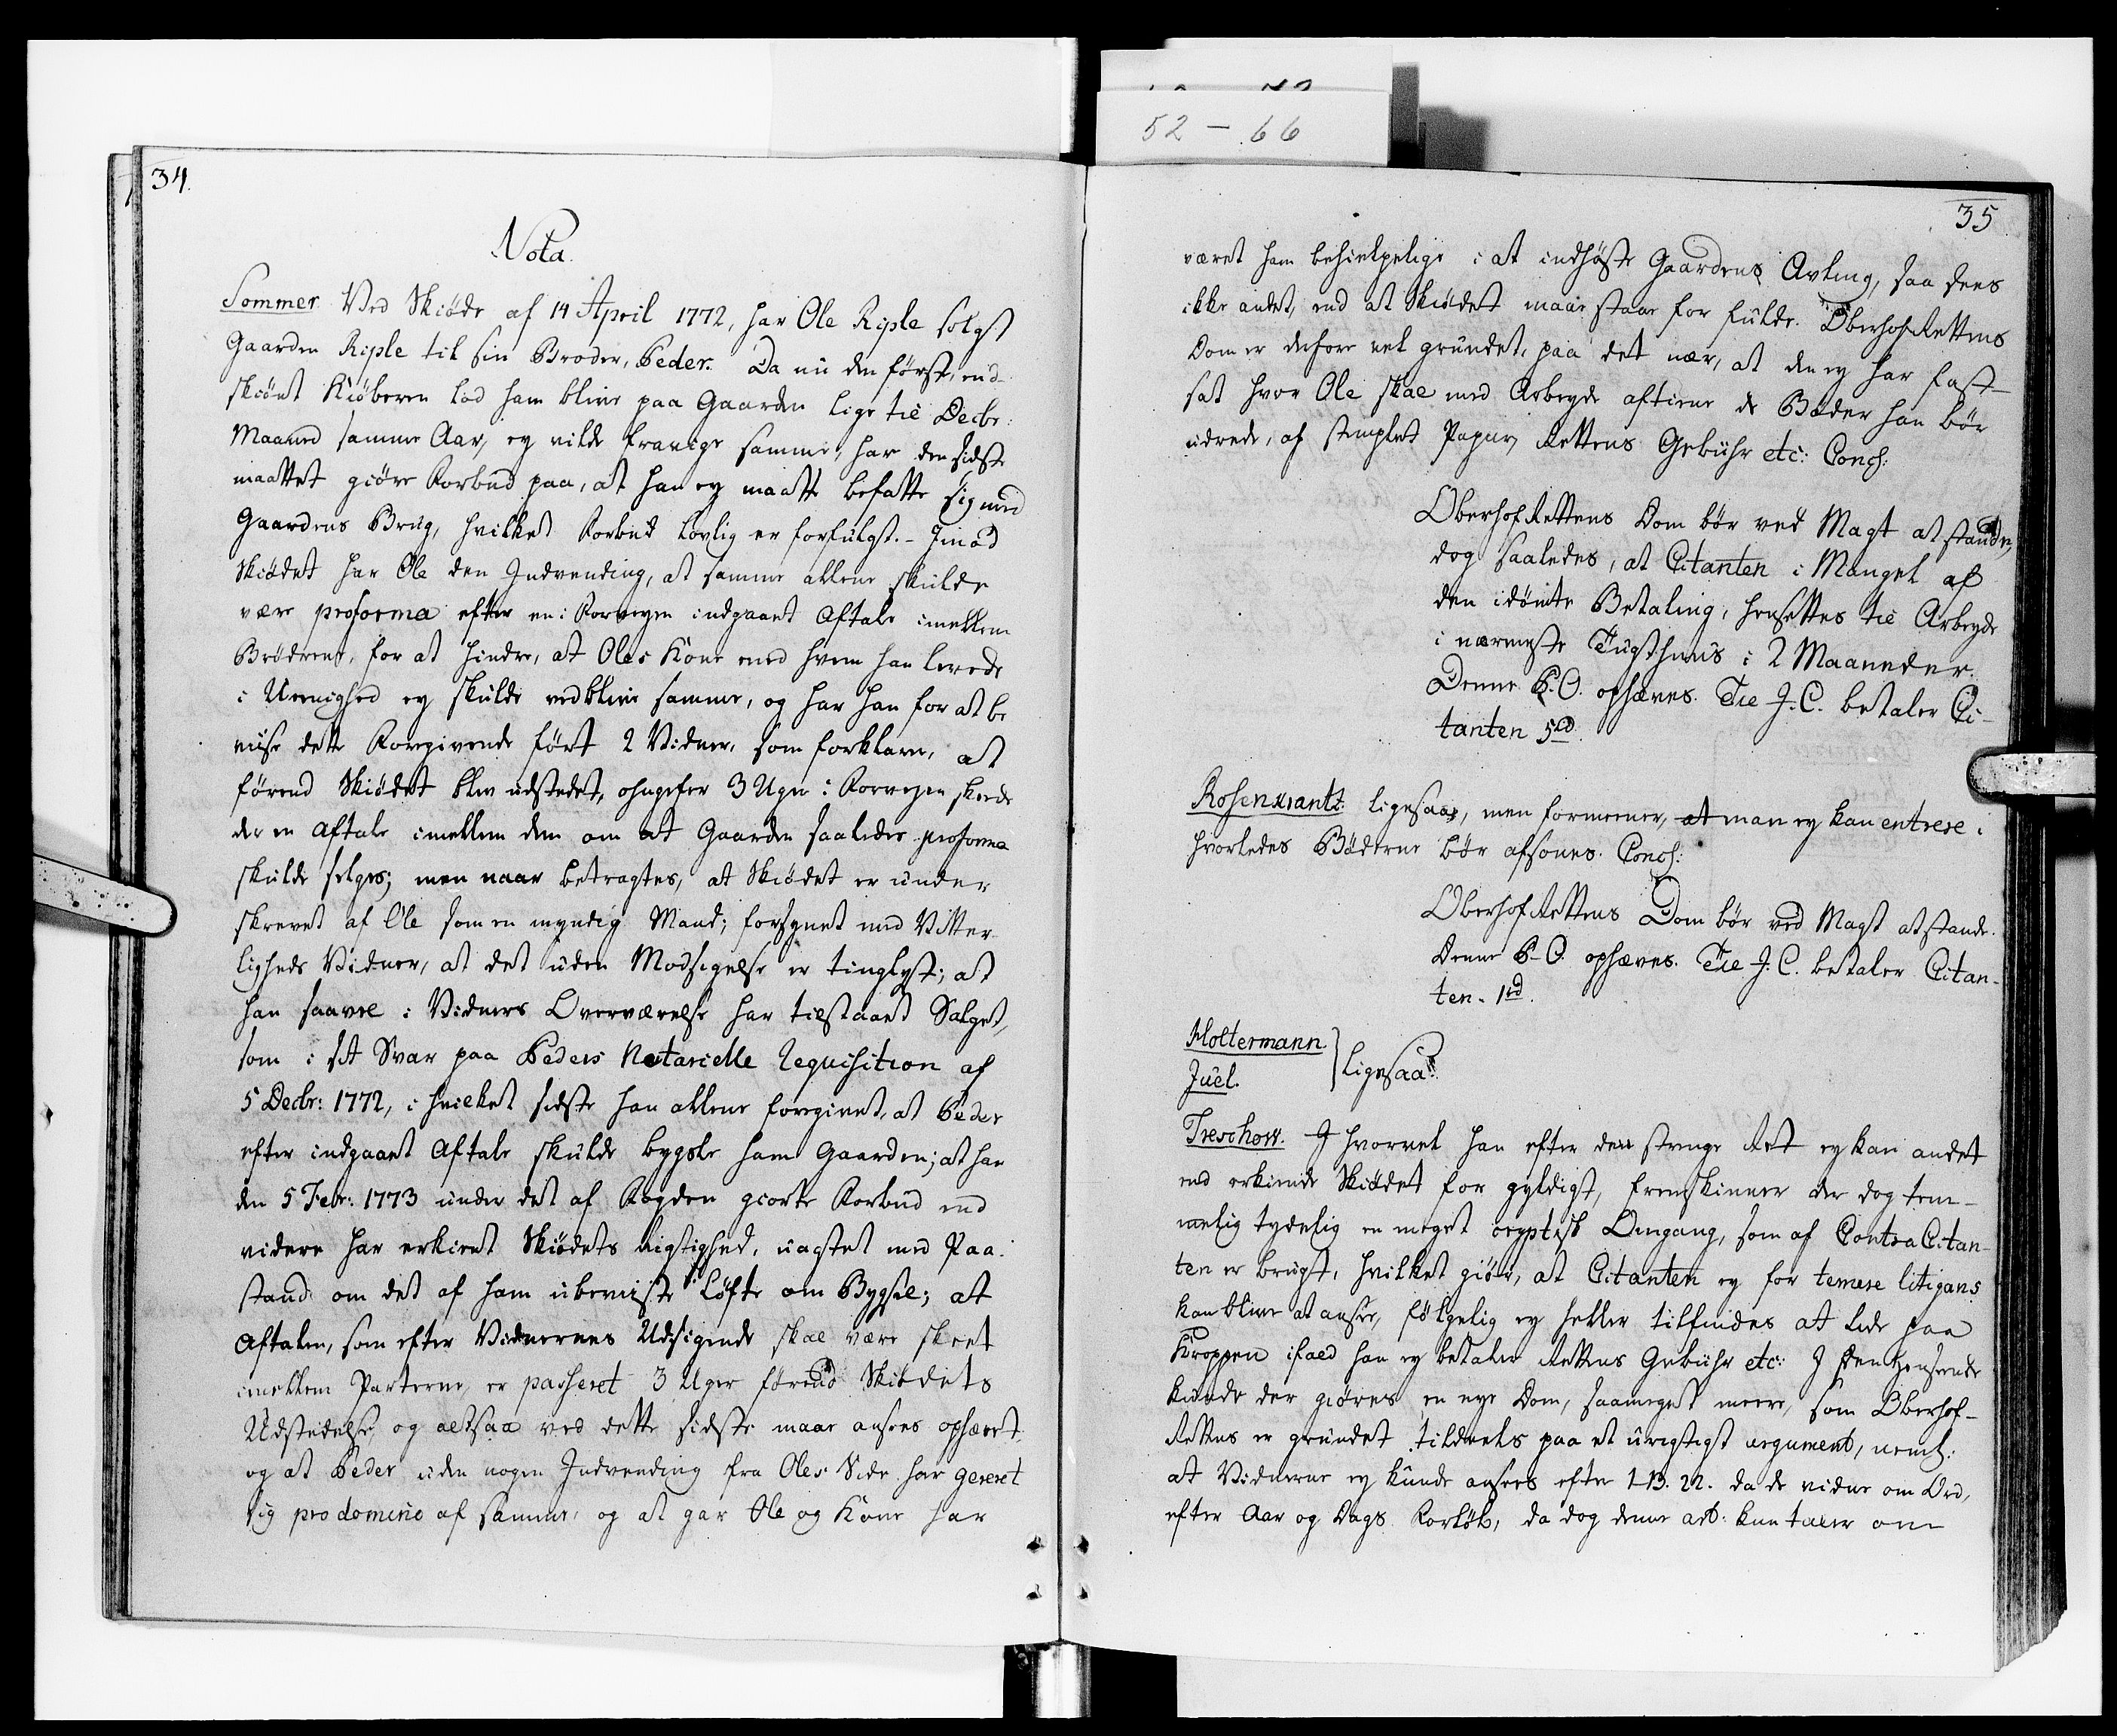 52 - 66
34.
Nota.
Sommer. Ved Skiøde af 14 April 1772, har Ole Riple solgt
Gaarden Riple til sin Broder, Peder. Da nu den første, end-
skiønt Kiøberen lod ham blive paa Gaarden lige til Decbr:
Maaned samme Aar, ey vilde fravige samme, har den sidste
maattet giøre Forbud paa, at han ey maatte befatte sig med
Gaardens Brug, hvilket Forbud lovlig er forfulgt. - Imod
Skiødet har Ole den Indvending, at samme allene skulde
være proforma efter en i Forveyen indgaaet Aftale imellem
Brødrene, for at hindre, at Oles Kone med hvem han levede
i Ueenighed ey skulde vedblive samme, og har han for at be
viise dette Foregivende ført 2 Vidner, som forklare, at
førend Skiødet blev udstedet, ohngefer 3 Uger i Forveyen skeede
der en Aftale imellem dem om at Gaarden saaledes proforma
skulde selges; men naar betragtes, at Skiødet er under
skrevet af Ole som en myndig Mand; forsynet med Vitter
ligheds Vidner, at det uden Modsigelse er tinglyst; at
han saavel i Vidners Overværelse har tilstaaet Salget,
som i sit Svar paa Peders Notarielle Requisition af
5 Decbr: 1772, i hvilket sidste han allene foregivet, at Peder
efter indgaaet Aftale skulde bygsle ham Gaarden; at han
den 5 Febr: 1773 under det af Fogden giorte Forbud end
videre har erkient Skiødets Rigtighed, uagtet med Paa-
stand om det af ham ubeviiste Løfte om Bygsel; at
Aftalen, som efter Vidnernes Udsigende skal være skeet
imellem Parterne, er passeret 3 Uger førend Skiødets
Udstedelse, og altsaa ved dette sidste maae ansees ophævet,
og at Peder uden nogen Indvending fra Oles Side har gereret
sig pro domino af samme, og at gar Ole og Kone har
35
været ham behielpelige i at indhøste Gaardens Avling, saa sees
ikke andet, end at Skiødet maae staae for fulde. OberhofRettens
Dom er derfore vel grundet, paa det nær, at den ey har fast-
sat hvor Ole skal med Arbeyde aftiene de Bøder han bør
udrede, af stemplet Papiir, Rettens Gebühr etc: Concl:
OberhofRettens Dom bør ved Magt at stande,
dog saaledes, at Citanten i Mangel af
den idømte Betaling, hensettes til Arbeyde
i nærmeste Tugthuus i 2 Maaneder.
Denne P.O. ophæves. Til J.C. betaler Ci-
tanten 5rd.
Rosenkrantz. ligesaa, men formeener, at man ey kan entrere i
hvorledes Bøderne bør afsones. Concl:
OberhofRettens Dom bør ved Magt at stande.
Denne P.O. ophæves. Til J.C. betaler Citan-
ten. 1rd.
Moltermann.
Juel. } Ligesaa.
Treschow. I hvorvel han efter den strenge Ret ey kan andet
end erkiende Skiødet for gyldigt, fremskinner der dog tem-
melig tydelig en meget cryptisk Omgang, som af ContraCitan-
ten er brugt, hvilket giør, at Citanten ey for temere litigans
kan blive at ansee, følgelig ey heller tilfindes at lide paa
Kroppen ifald han ey betaler Rettens Gebühr etc: I den Henseende
kunde der giøres en nye Dom, saameget meere, som Oberhof-
Rettens er grundet tildeels paa et urigtigt argument, neml:
at Vidnerne ey kunde ansees efter 1-13. 22. da de vidne om Ord,
efter Aar og Dags Forløb, da dog denne art: kun taler om